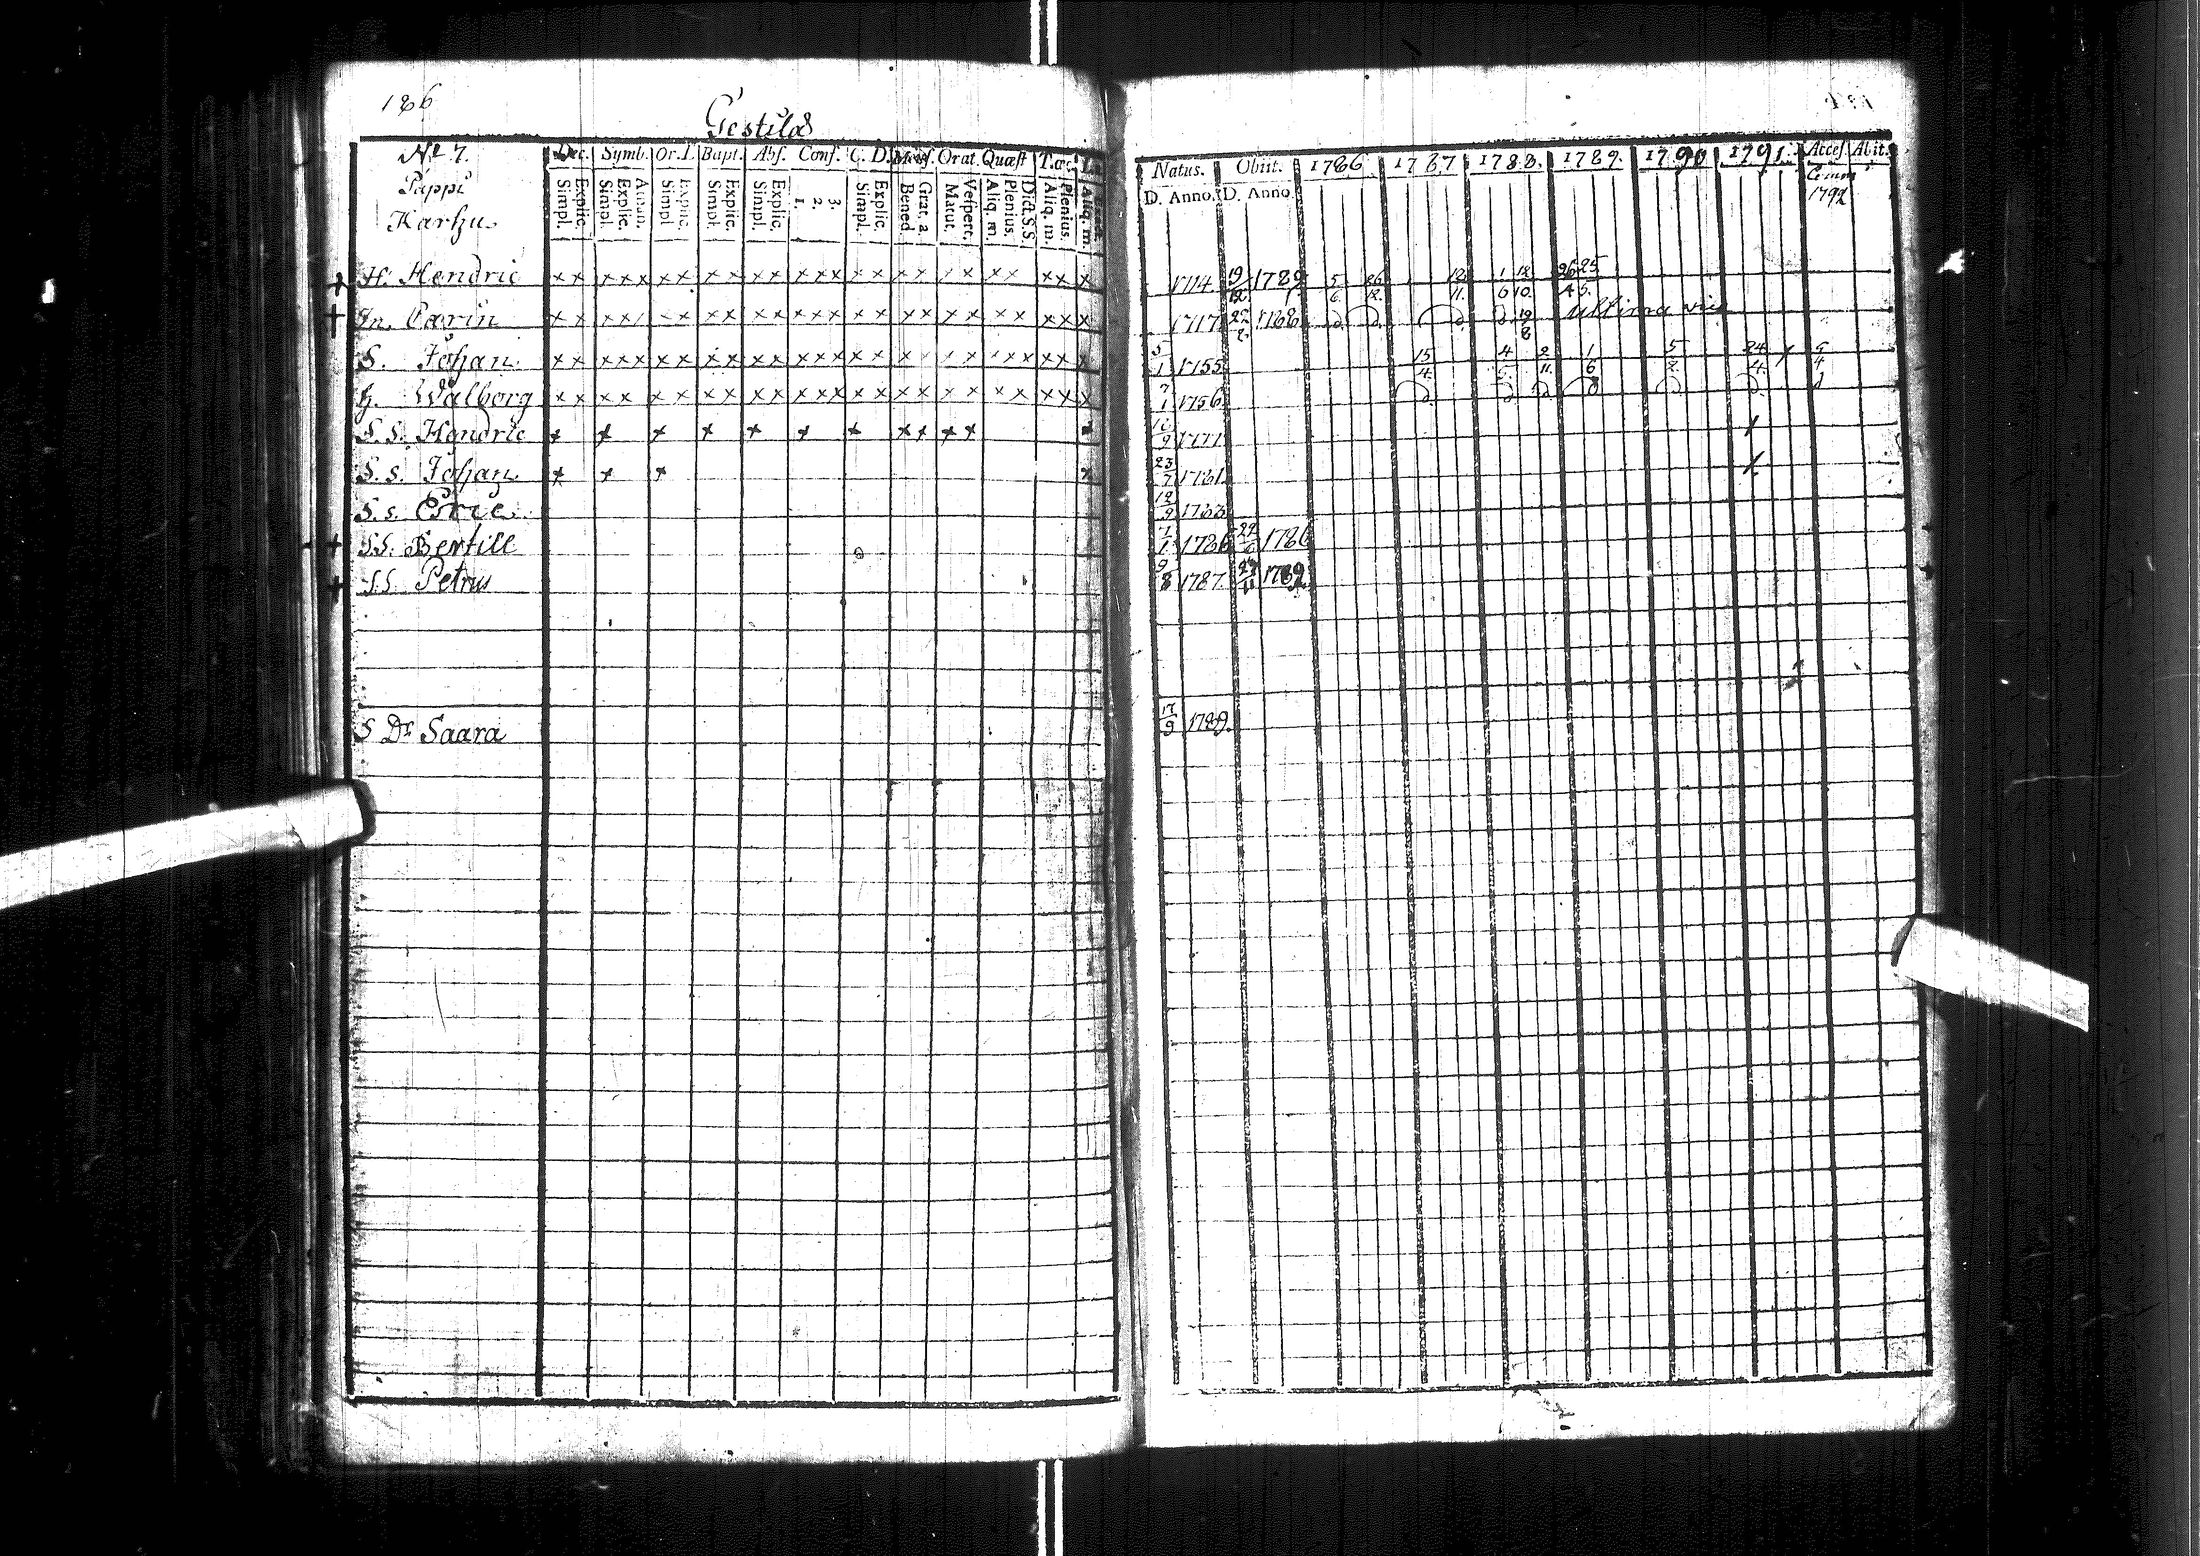 186
Gestilä
No 7.
Pappi
Karhu
Dec. Symb. Or. D. Bapt. Abs. Conf. C. D. Mens. Orat. Quæst T. œc.
Simpl. Explic. Simpl. Explic. Athan. Simpl. Explic. Simpl. Explic. Simpl. Explic. 1. 2. 3. Simpl. Explic. Bened. Grat. a. Matut. Vespert. Aliq. m. Plenius. Dict. S.S. Aliq. m. Plenius. Aliq. m.
Natus. Obiit. 1786 1787 1788. 1789. 1790 1791. Acces. Abit.
D. Anno. D. Anno. Comm 1792
† H. Hendric x x x x x x x x x x x x x x x x x x x x x x x x x 1714. 19/12 1789 5/6 26/12. 12/11. 1/6 12/10. 26/4 25/5.
† Hu. Carin x x x x x x x x x x x x x x x x x x x x x x x x 1717. 22/8 1788 19/8 ultima vice
S. Johan x x x x x x x x x x x x x x x x x x x x x x x x x x 5/1 1755 15/4. 1/6 5/2 24/4. 5/4
H. Wålborg x x x x x x x x x x x x x x x x x x x x x x x x x 7/1 1756
S. s. Hendric x x x x x x x x x x x 1777
S. s. Johan x x x x 23/7 1781.
S. s. Eric 12/9 1783
† S.S. Bertill 7/1 1786 22/6 1786
† S.S. Petrus 9/8 1787. 29/11 1789.
S Dr Saara 17/9 1789.